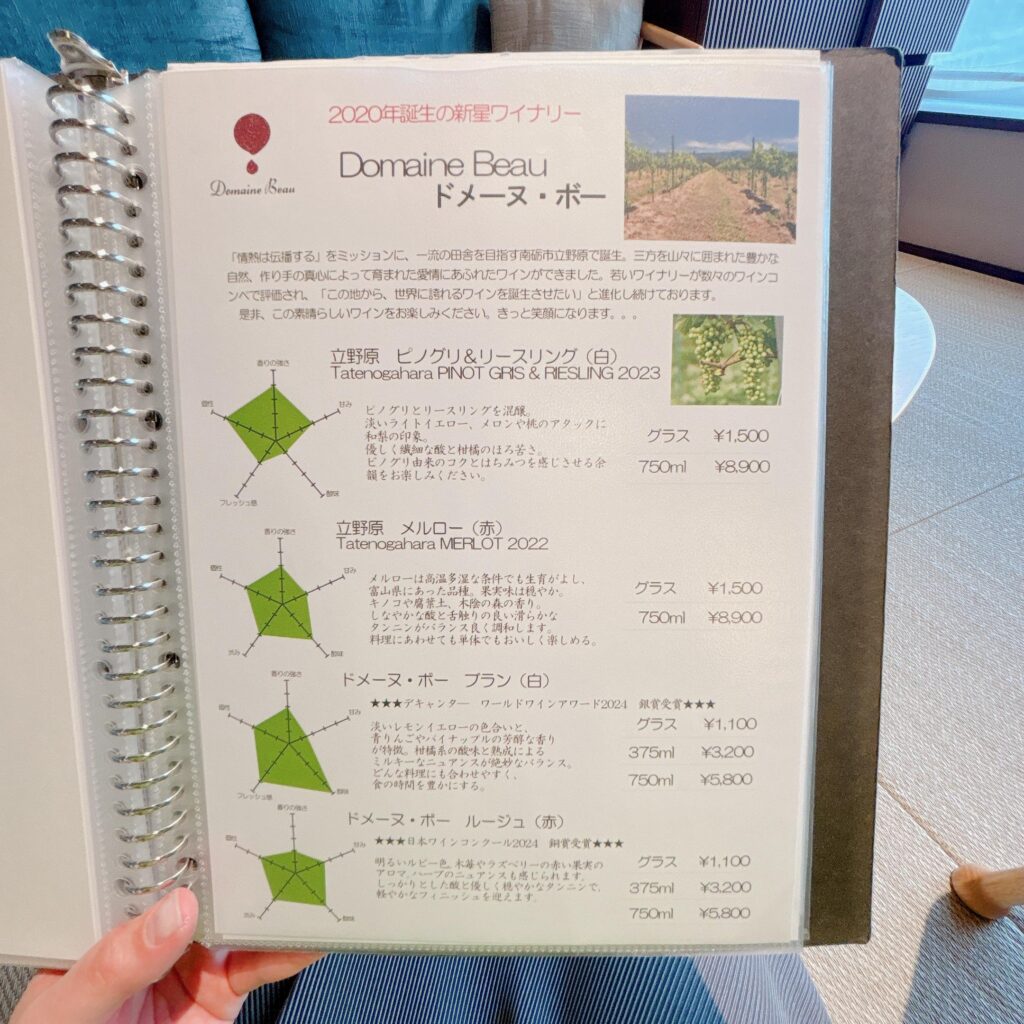 2020年誕生の新星ワイナリー
Domaine Beau
Domaine Beau
ドメーヌ・ボー
「情熱は伝播する」をミッションに、一流の田舎を目指す南砺市立野原で誕生。三方を山々に囲まれた豊かな
自然、作り手の真心によって育まれた愛情にあふれたワインができました。若いワイナリーが数々のワインコ
ンペで評価され、「この地から、世界に誇れるワインを誕生させたい」と進化し続けております。
是非、この素晴らしいワインをお楽しみください。きっと笑顔になります。。。
立野原 ピノグリ＆リースリング（白）
Tatenogahara PINOT GRIS & RIESLING 2023
香りの強さ
個性
甘み
フレッシュ感
酸味
ピノグリとリースリングを混醸。
淡いライトイエロー、メロンや桃のアタックに
和梨の印象。
優しく繊細な酸と柑橘のほろ苦さ。
ピノグリ由来のコクとはちみつを感じさせる余
韻をお楽しみください。
グラス ¥1,500
750ml ¥8,900
立野原 メルロー（赤）
Tatenogahara MERLOT 2022
香りの強さ
個性
甘み
渋み
酸味
メルローは高温多湿な条件でも生育がよし、
富山県にあった品種。果実味は穏やか。
キノコや腐葉土、木陰の森の香り。
しなやかな酸と舌触りの良い滑らかな
タンニンがバランス良く調和します。
料理にあわせても単体でもおいしく楽しめる。
グラス ¥1,500
750ml ¥8,900
ドメーヌ・ボー ブラン（白）
★★★デキャンター ワールドワインアワード2024 銀賞受賞★★★
香りの強さ
個性
甘み
フレッシュ感
酸味
淡いレモンイエローの色合いと、
青りんごやパイナップルの芳醇な香り
が特徴。柑橘系の酸味と熟成による
ミルキーなニュアンスが絶妙なバランス。
どんな料理にも合わせやすく、
食の時間を豊かにする。
グラス ¥1,100
375ml ¥3,200
750ml ¥5,800
ドメーヌ・ボー ルージュ（赤）
★★★日本ワインコンクール2024 銅賞受賞★★★
香りの強さ
個性
甘み
渋み
酸味
明るいルビー色。木苺やラズベリーの赤い果実の
アロマ。ハーブのニュアンスも感じられます。
しっかりとした酸と優しく穏やかなタンニンで、
軽やかなフィニッシュを迎えます。
グラス ¥1,100
375ml ¥3,200
750ml ¥5,800